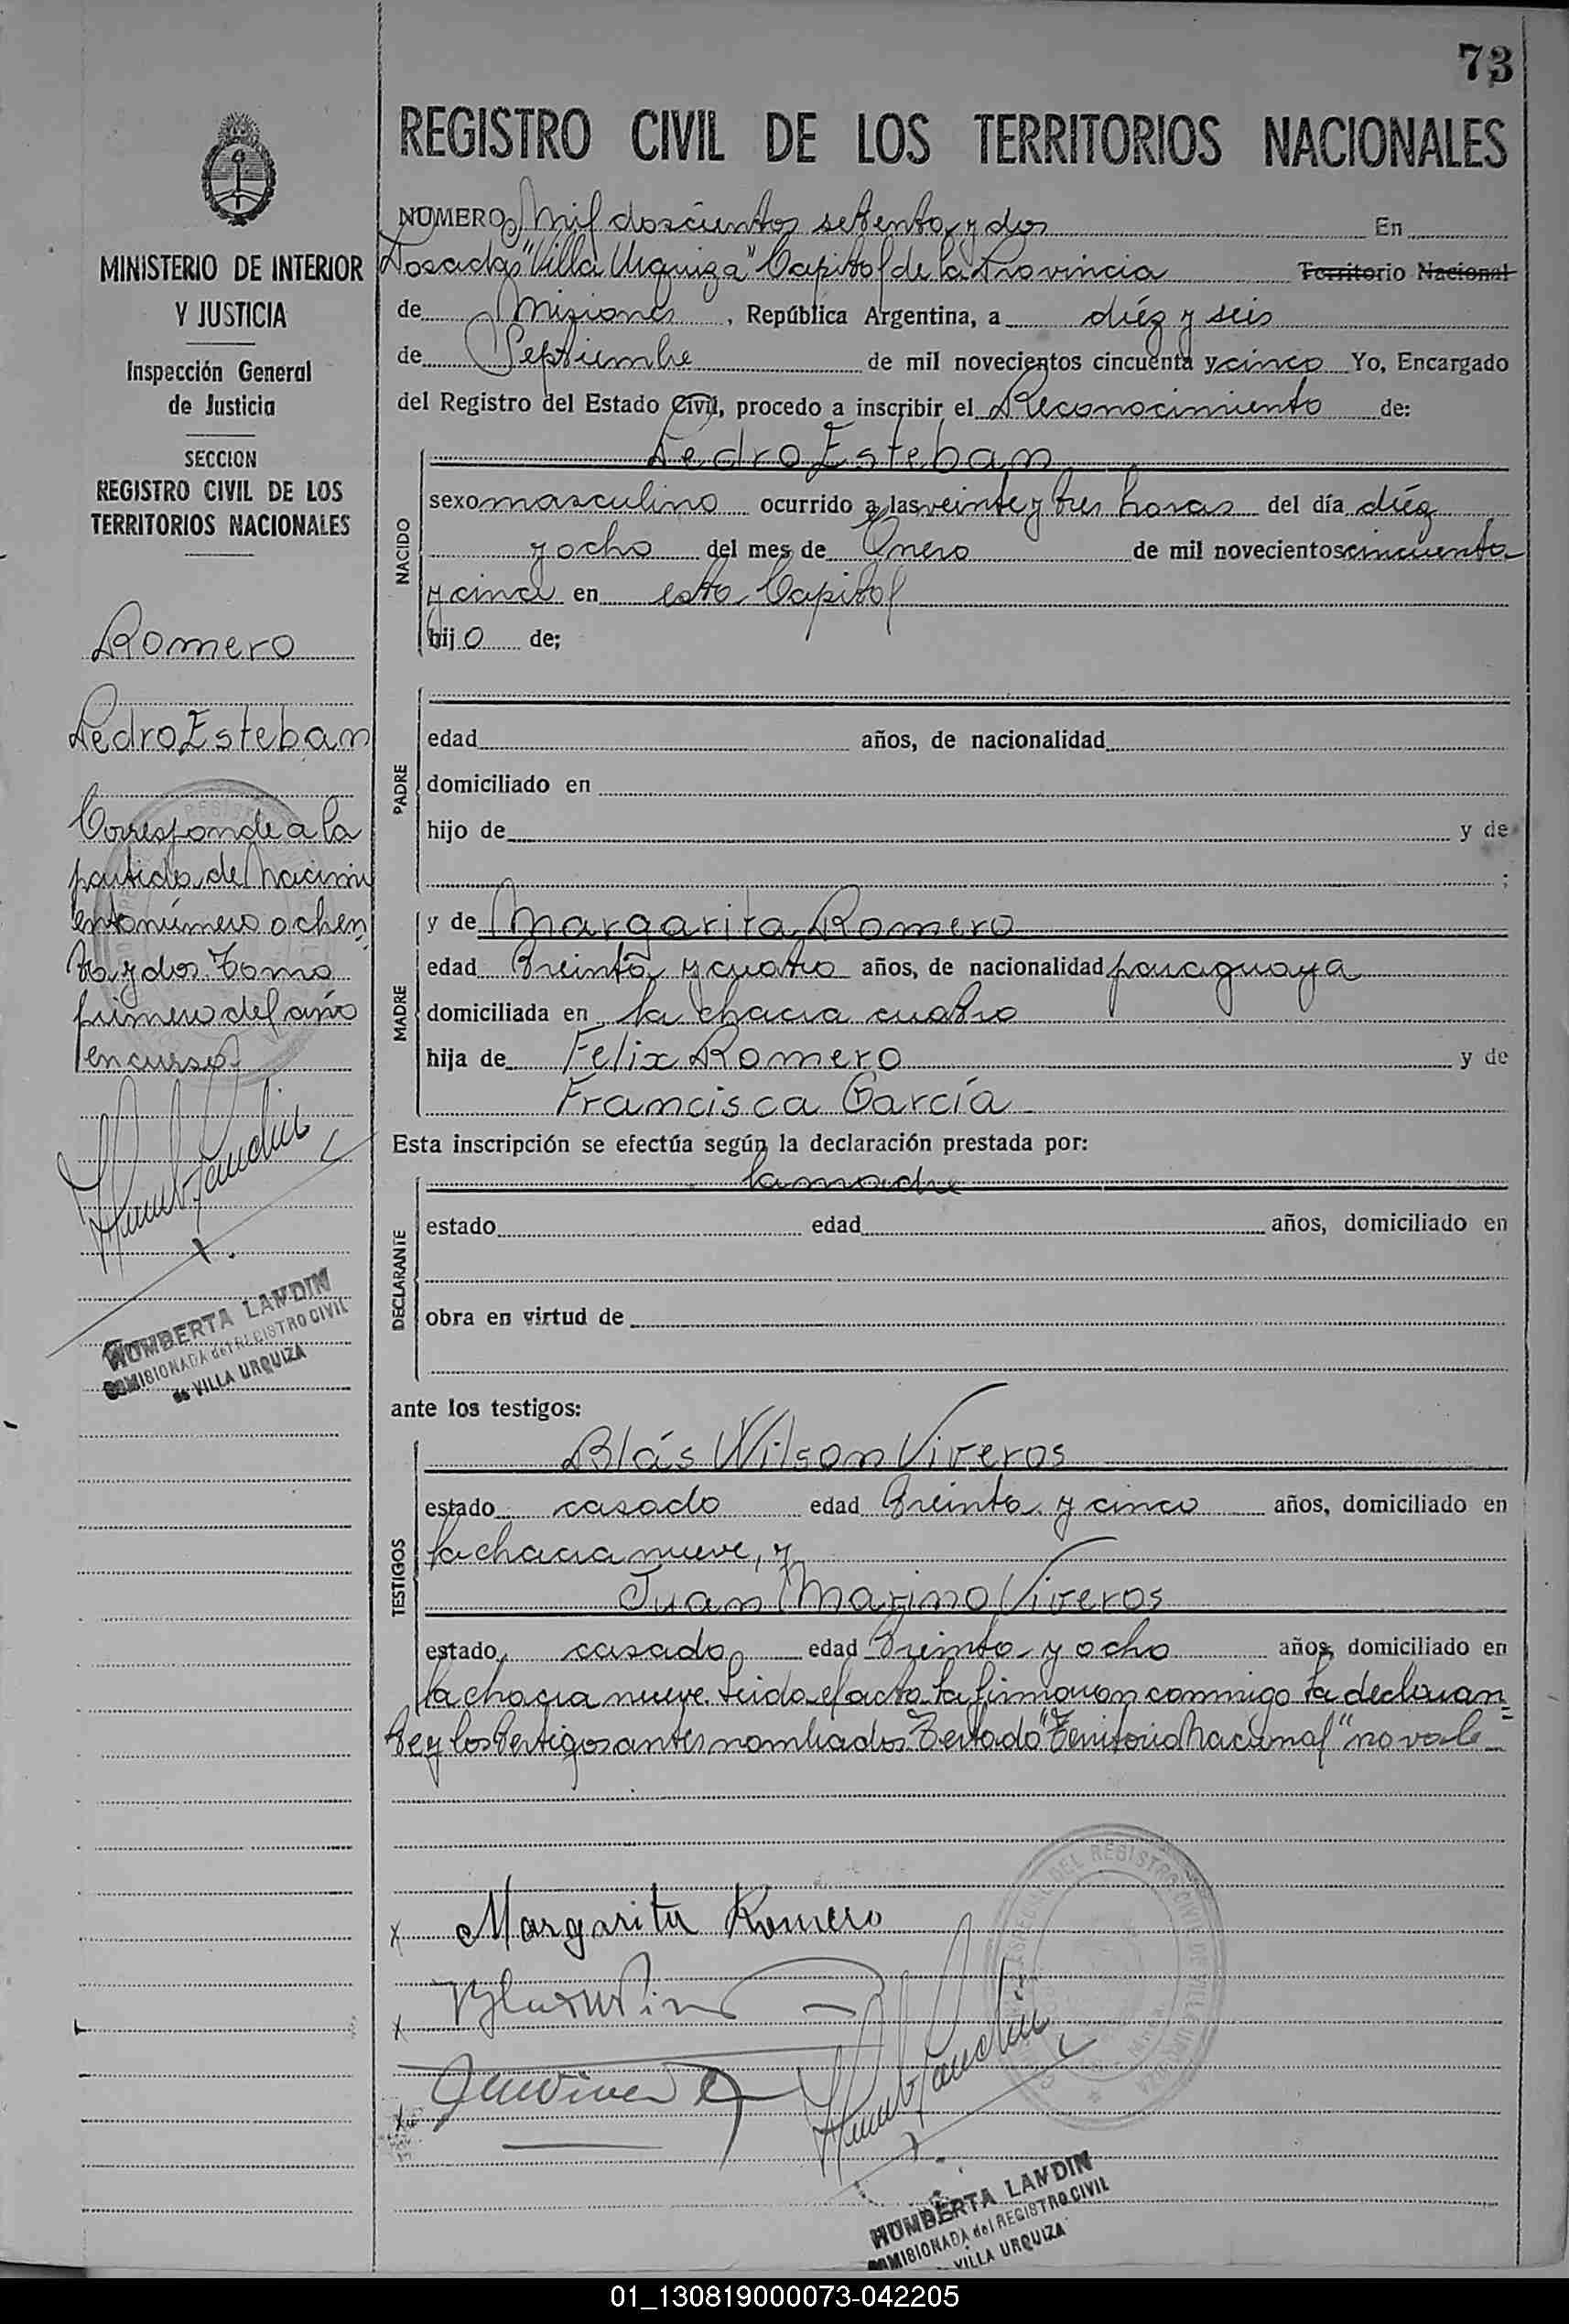 73
REGISTRO CIVIL DE LOS TERRITORIOS NACIONALES
MINISTERIO DE INTERIOR
Y JUSTICIA
Inspección General
de Justicia
SECCION
REGISTRO CIVIL DE LOS
TERRITORIOS NACIONALES
Romero
Pedro Esteban
Corresponde a la
partida de nacimi
ento número ochen
ta y dos Tomo
primero del año
en curso
HUMBERTA LANDIN
COMISIONADA del REGISTRO CIVIL
de VILLA URQUIZA
NUMERO Mil doscientos setenta y dos En
Posadas "Villa Urquiza" Capital de la Provincia Territorio Nacional
de Misiones, República Argentina, a diéz y seis
de Septiembre de mil novecientos cincuenta y cinco Yo, Encargado
del Registro del Estado Civil, procedo a inscribir el Reconocimiento de:
NACIDO
Pedro Esteban
sexo masculino ocurrido a las veinte y tres horas del día diéz
y ocho del mes de Enero de mil novecientos cincuenta
y cinco en esta Capital
hijo de;
PADRE
edad años, de nacionalidad
domiciliado en
hijo de y de
;
MADRE
y de Margarita Romero
edad treinta y cuatro años, de nacionalidad paraguaya
domiciliada en la chacra cuatro
hija de Felix Romero y de
Francisca García
Esta inscripción se efectúa según la declaración prestada por:
DECLARANTE
la madre
estado edad años, domiciliado en
obra en virtud de
ante los testigos:
TESTIGOS
Blás Wilson Viveros
estado casado edad treinta y cinco años, domiciliado en
la chacra nueve, y
Juan Marino Viveros
estado casado edad treinta y ocho años, domiciliado en
la chacra nueve. Leida el acta la firmaron conmigo la declaran=
te y los testigos antes nombrados. Testado "Territorio Nacional" no vale
Margarita Romero
HUMBERTA LANDIN
COMISIONADA del REGISTRO CIVIL
VILLA URQUIZA
01_130819000073-042205